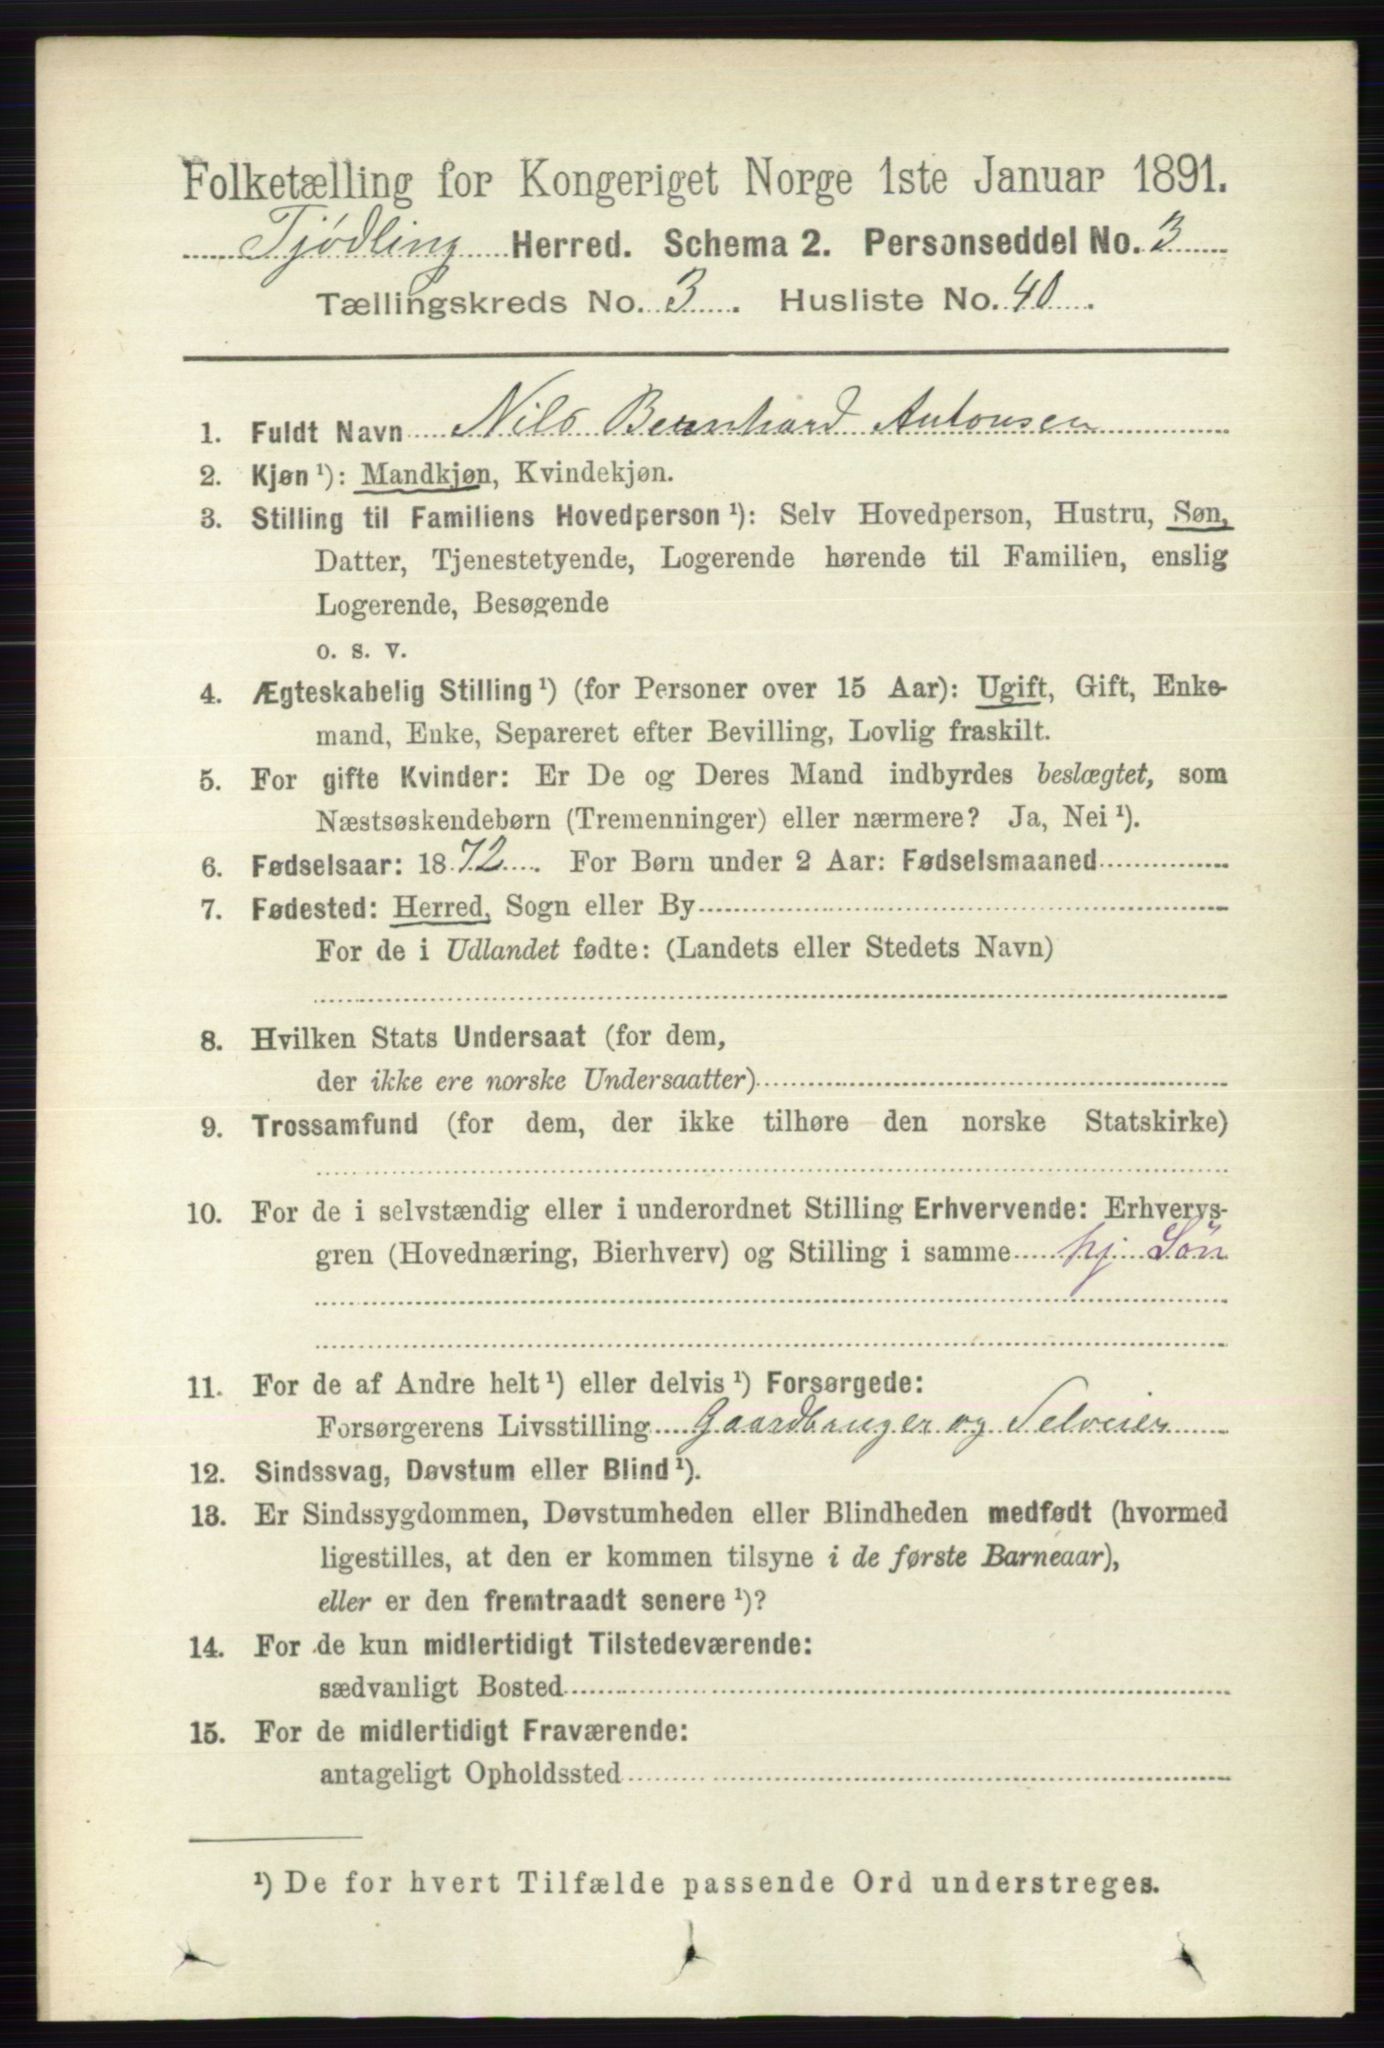 Folketælling for Kongeriget Norge 1ste Januar 1891.
Tjødling Herred. Schema 2. Personseddel No. 3
Tællingskreds No. 3. Husliste No. 40.
1. Fuldt Navn Nils Bernhard Antonsen
2. Kjøn ¹): Mandkjøn, Kvindekjøn.
3. Stilling til Familiens Hovedperson ¹): Selv Hovedperson, Hustru, Søn,
Datter, Tjenestetyende, Logerende hørende til Familien, enslig
Logerende, Besøgende
o. s. v.
4. Ægteskabelig Stilling ¹) (for Personer over 15 Aar): Ugift, Gift, Enke-
mand, Enke, Separeret efter Bevilling, Lovlig fraskilt.
5. For gifte Kvinder: Er De og Deres Mand indbyrdes beslægtet, som
Næstsøskendebørn (Tremenninger) eller nærmere? Ja, Nei ¹).
6. Fødselsaar: 1872. For Børn under 2 Aar: Fødselsmaaned
7. Fødested: Herred, Sogn eller By
For de i Udlandet fødte: (Landets eller Stedets Navn)
8. Hvilken Stats Undersaat (for dem,
der ikke ere norske Undersaatter)
9. Trossamfund (for dem, der ikke tilhøre den norske Statskirke)
10. For de i selvstændig eller i underordnet Stilling Erhvervende: Erhvervs-
gren (Hovednæring, Bierhverv) og Stilling i samme hj. Søn
11. For de af Andre helt ¹) eller delvis ¹) Forsørgede:
Forsørgerens Livsstilling Gaardbruger og Selveier
12. Sindssvag, Døvstum eller Blind ¹).
13. Er Sindssygdommen, Døvstumheden eller Blindheden medfødt (hvormed
ligestilles, at den er kommen tilsyne i de første Barneaar),
eller er den fremtraadt senere ¹)?
14. For de kun midlertidigt Tilstedeværende:
sædvanligt Bosted
15. For de midlertidigt Fraværende:
antageligt Opholdssted
¹) De for hvert Tilfælde passende Ord understreges.